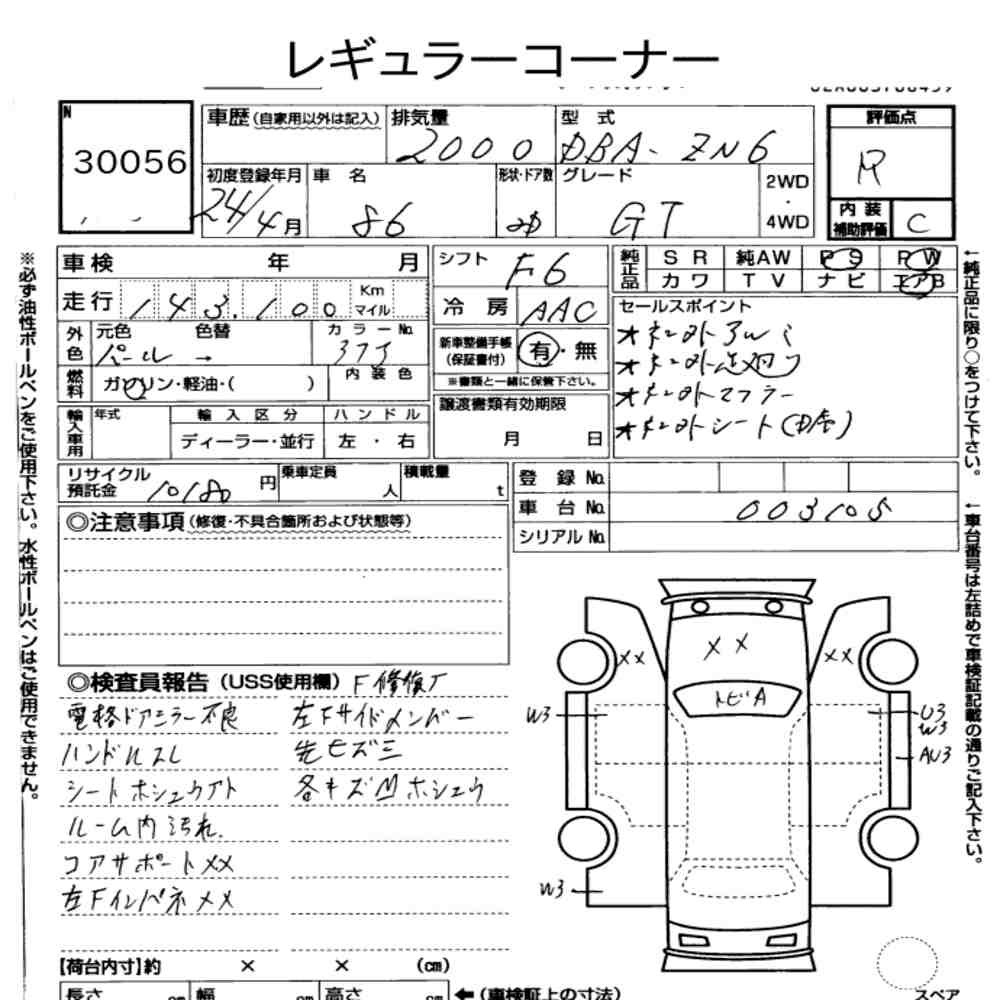 レギュラーコーナー
N
30056
車歴(自家用以外は記入)
排気量
2000
型式
DBA-ZN6
評価点
R
初度登録年月
24/4月
車名
86
形状・ドア数
グレード
GT
2WD
・
4WD
内装
補助評価
C
車検 年 月
シフト
F6
純正品
SR 純AW PS PW
カワ TV ナビ エアB
走行 143,100 Km
マイル
冷房
AAC
セールスポイント
★社外AW
★社外マフラー
★社外シート
外色
元色 色替
パール →
カラーNo.
37J
新車整備手帳
(保証書付)
有・無
※書類と一緒に保管下さい。
燃料
ガソリン・軽油・( )
内装色
譲渡書類有効期限
月 日
輸入車用
年式
輸入区分
ハンドル
ディーラー・並行
左・右
リサイクル
預託金
10180円
乗車定員
人
積載量
t
登録No.
車台No.
003105
シリアルNo.
◎注意事項(修復・不具合箇所および状態等)
◎検査員報告(USS使用欄) F修復歴
電格ドアミラー不良
左Fサイドメンバー
ハンドルスレ
先ヒズミ
シートホシュウアト
各キズ凹ホシュウ
ルーム内汚れ
コアサポートXX
左FインパネXX
XX
XX
XX
トビA
W3
U3
W3
AU3
W3
【荷台内寸】約 × × (cm)
長さ cm
幅 cm
高さ cm
←(車検証上の寸法)
スペア
※必ず油性ボールペンをご使用下さい。水性ボールペンはご使用できません。
←純正品に限り○をつけて下さい。
←車台番号は左詰めで車検証記載の通りご記入下さい。